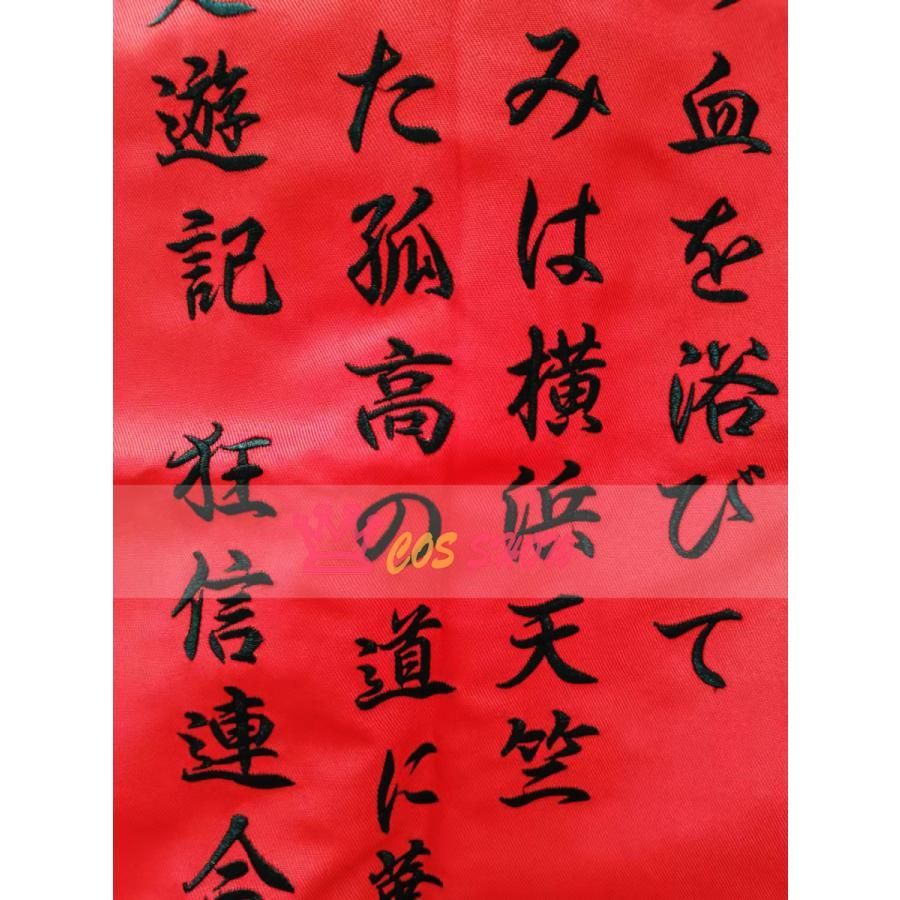 血を浴びて
みは横浜天竺
た孤高の道に華
遊記 狂信連合
COS